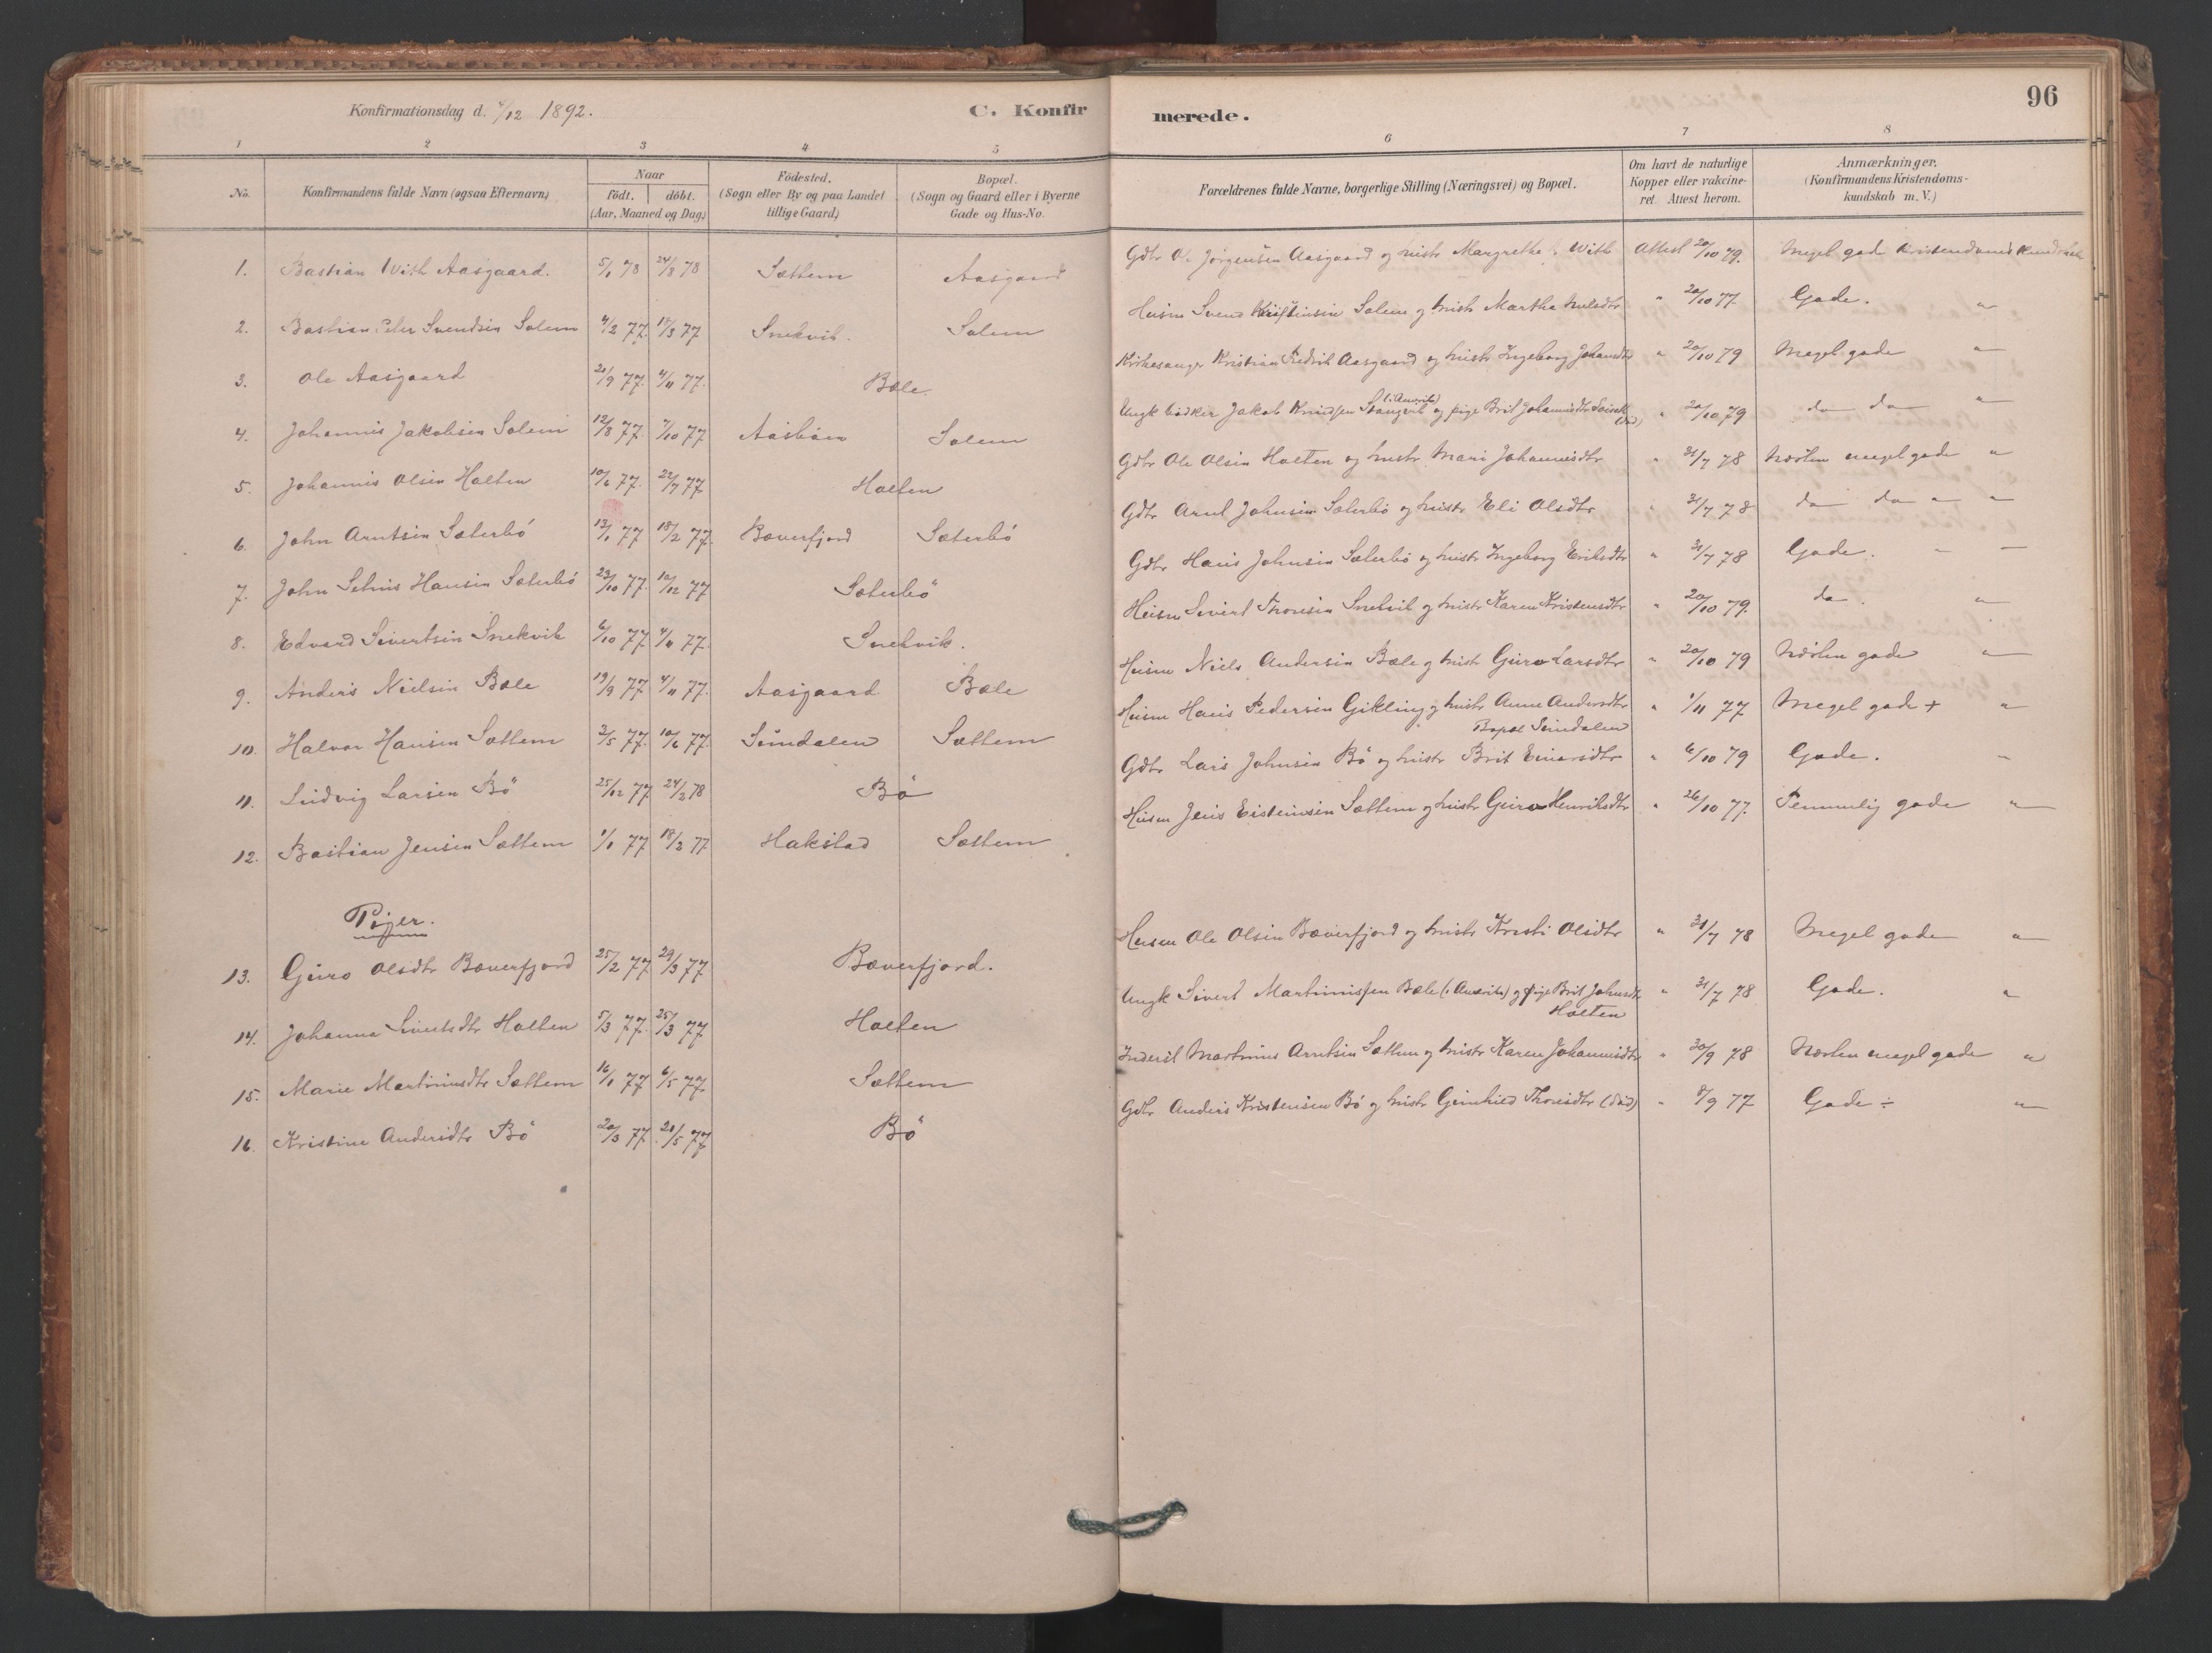 Konfirmationsdag d. 4/12 1892.
C. Konfirmerede.
96
1 2 3 4 5 6 7 8
No.
Konfirmandens fulde Navn (ogsaa Efternavn)
Naar
födt. döbt.
(Aar, Maaned og Dag.)
Födested.
(Sogn eller By og paa Landet
tillige Gaard.)
Bopæl.
(Sogn og Gaard eller i Byerne
Gade og Hus-No.
Forældrenes fulde Navne, borgerlige Stilling (Næringsvei) og Bopæl.
Om havt de naturlige
Kopper eller vakcine-
ret. Attest herom.
Anmærkninger.
(Konfirmandens Kristendoms-
kundskab m. V.)
1. Bastian With Aasgaard. 5/1 78 24/3 78 Sættem Aasgaard Gdbr Ol. Jörgensen Aasgaard og hustr Margrethe With Attest 20/10 79. Meget gode Kristendomskundskab
2. Bastian Peter Svendsen Solem 4/2 77. 18/3 77 Snekvik. Solem Husm Svend Kristensen Solem og hustr Martha Nilsdtr " 20/10 77 Gode. "
3. Ole Aasgaard 21/9 77. 4/11 77. Bæle. Kirkesanger Kristian Fredrik Aasgaard og hustr Ingeborg Johansdtr " 20/10 79 Meget gode "
4. Johannes Jakobsen Solem 12/8 77. 7/10 77 Solem Ungk Jakob Knudsen Stangvik (i Amerika) og pige Brit Johannesdtr (död) " 20/10 79 do do "
5. Johannes Olsen Holten 10/6 77. 22/7 77 Holten Gdbr Ole Olsen Holten og hustr Mari Johannesdtr " 31/7 78 Næsten meget gode "
6. John Arntsen Sæterbö 13/1 77 18/2 77. Bæverfjord Sæterbö Gdbr Arnt Johnsen Sæterbö og hustr Eli Olsdtr " 31/7 78 do do " "
7. John Hansen Sæterbö 23/10 77. 10/12 77 Sæterbö Gdbr Hans Johnsen Sæterbö og hustr Ingeborg Eriksdtr " 31/7 78 Gode. " —
8. Edvard Sivertsen Snekvik 6/10 77. 4/11 77. Snekvik. Husm Sivert Thoresen Snekvik og hustr Karen Kristensdtr " 20/10 79. do. "
9. Anders Nielsen Bæle 19/9 77 4/11 77. Aasgaard Bæle Husm Niels Andersen Bæle og hustr Guro Larsdtr " 20/10 79 Næsten gode "
10. Halvor Hansen Sættem 2/5 77. 10/6 77. Sundalen Sættem Husm Hans Pedersen Gikling og hustr Anne Andersdtr Bopæl Sundalen " 1/11 77 Meget gode + "
11. Ludvig Larsen Bö 25/12 77 24/2 78 Bö Gdbr Lars Johnsen Bö og hustr Brit Einarsdtr " 6/10 79 Gode. "
12. Bastian Jensen Sættem 1/1 77 18/2 77 Hakstad Sættem Husm Jens Eisteinsen Sættem og hustr Guro Henriksdtr " 26/10 77. Temmelig gode "
Piger.
13. Guro Olsdtr Bæverfjord 25/2 77. 29/3 77 Bæverfjord. Husm Ole Olsen Bæverfjord og hustr Kristi Olsdtr " 31/7 78 Meget gode "
14. Johanna Sivertsdtr Holten 5/3 77. 25/3 77 Holten Ungk Sivert Martinussen Bæle (i Amerika) og Pige Brit Johnsdtr Holten " 31/7 78 Gode. "
15. Marie Martinusdtr Sættem 16/1 77 6/5 77. Sættem Inderst Martinus Arntsen Sættem og hustr Karen Johannesdtr " 30/9 78 Næsten meget gode "
16. Kristine Andersdtr Bö 20/3 77. 21/5 77. Bö Gdbr Anders Kristensen Bö og hustr Gunhild Thoresdtr (död) " 8/9 77 Gode ÷ "